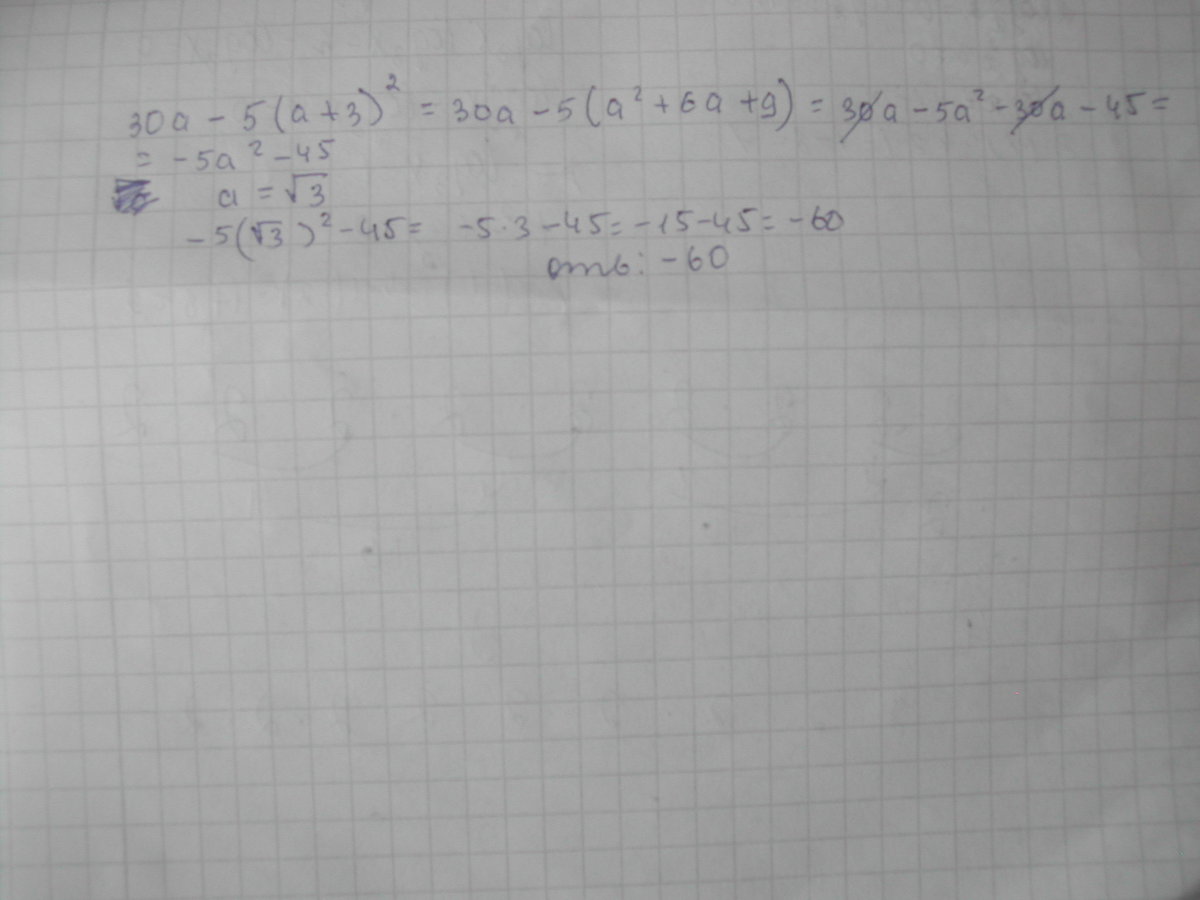 30a - 5(a+3)² = 30a - 5(a² + 6a + 9) = 30a - 5a² - 30a - 45 =
= -5a² - 45
a = √3
-5(√3)² - 45 = -5·3 - 45 = -15 - 45 = -60
отв: -60